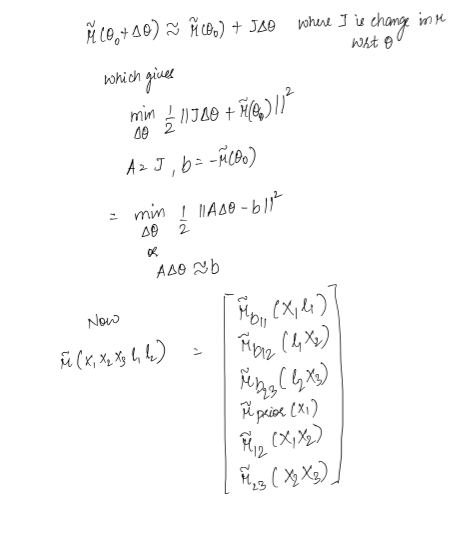 μ̃(θ₀+Δθ) ≈ μ̃(θ₀) + JΔθ where J is change in μ
wrt θ
which gives
min 1/2 ||JΔθ + μ̃(θ₀)||²
Δθ
A = J, b = -μ̃(θ₀)
= min 1/2 ||AΔθ - b||²
Δθ
or
AΔθ ≈ b
Now
μ̃(x₁ x₂ x₃ l₁ l₂) =
μ̃b₁₁ (x₁ l₁)
μ̃b₁₂ (l₁ x₂)
μ̃b₂₃ (l₂ x₃)
μ̃prior (x₁)
μ̃₁₂ (x₁ x₂)
μ̃₂₃ (x₂ x₃)